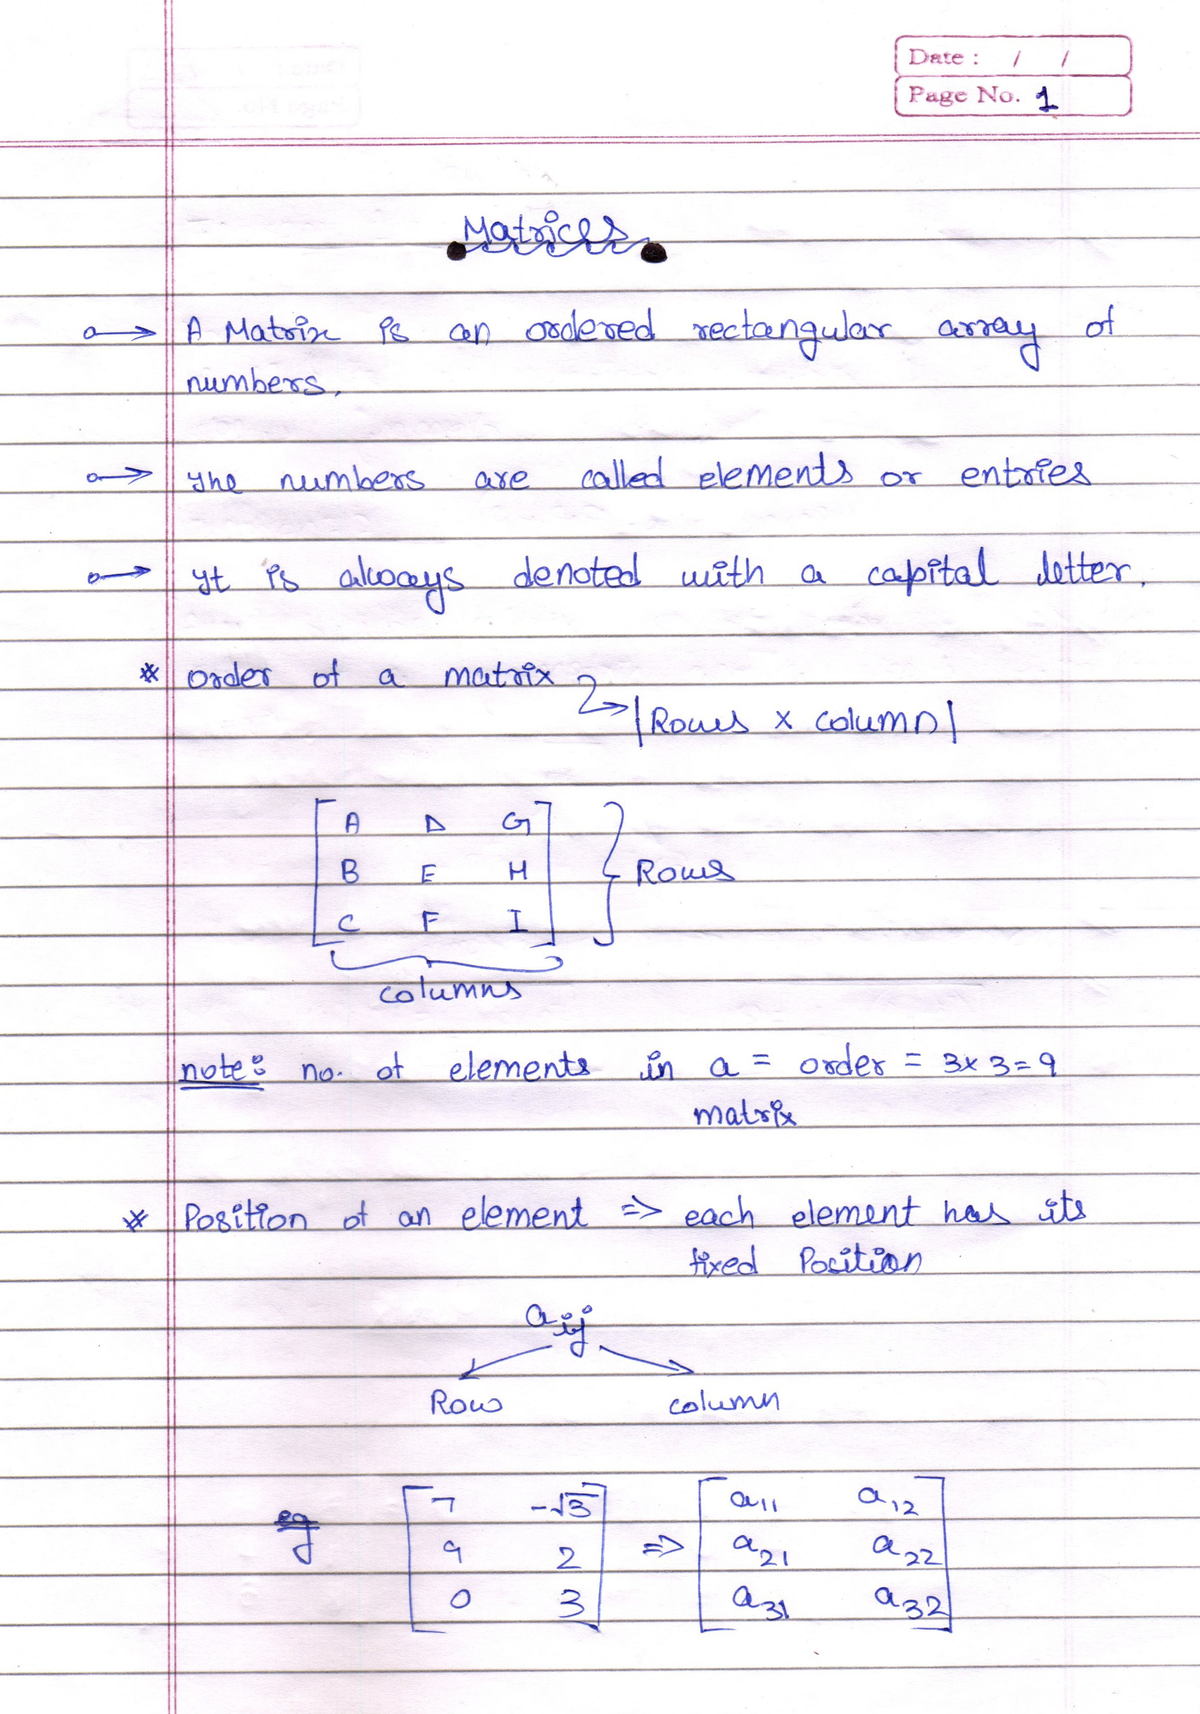 Date : / /
Page No. 1
Matrices
A Matrix is an ordered rectangular array of
numbers.
The numbers are called elements or entries
It is always denoted with a capital letter.
* order of a matrix
|Rows x column|
A D G
B E H
C F I
Rows
columns
note: no. of elements in a = order = 3x3=9
matrix
* Position of an element => each element has its
fixed Position
aij
Row column
eg
7 -√3 a11 a12
9 2 => a21 a22
0 3 a31 a32